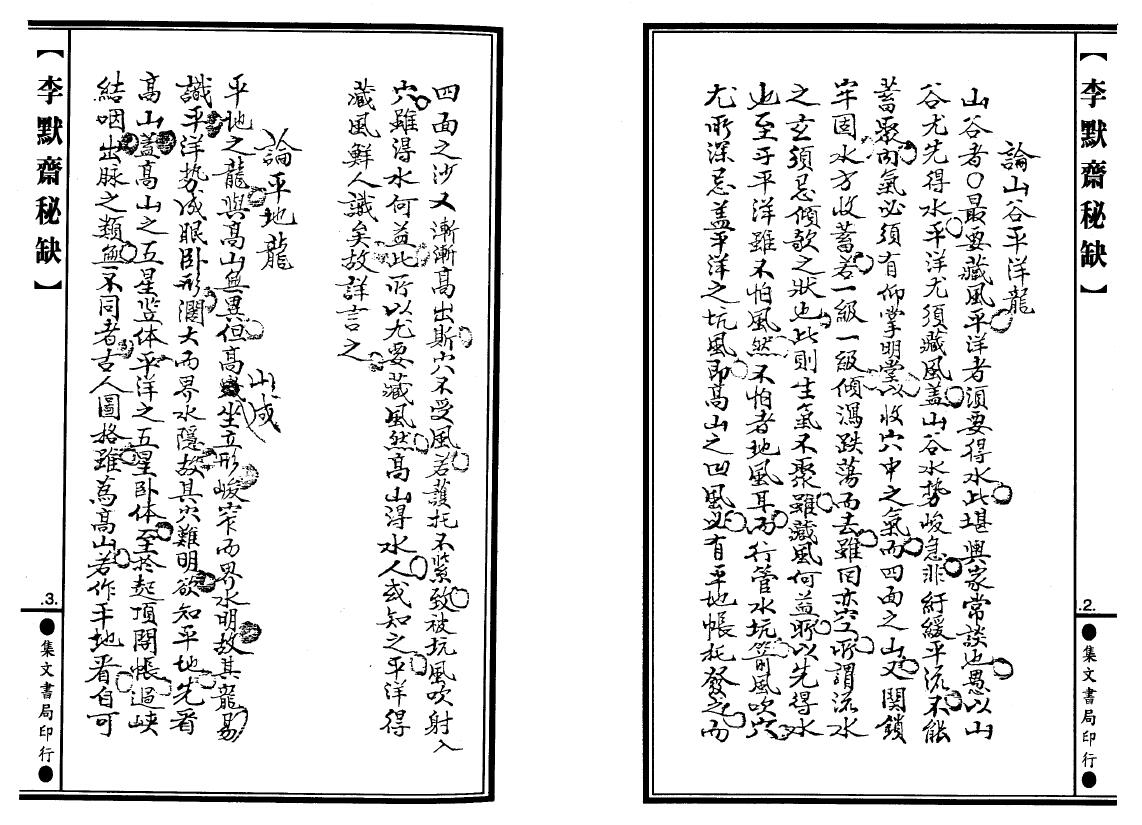 【李默齋秘缺】
論山谷平洋龍
山谷者○最要藏風平洋者須要得水此堪輿家常談也愚以山
谷尤先得水平洋尤須藏風盖山谷水势峻急非紆緩平流不能
蓄聚内氣必須有仰掌明堂以收穴中之氣而四面之山又関鎖
牢固水方收蓄若一級一級傾瀉跌蕩而去雖回亦空所謂流水
之玄須忌傾欹之狀也此則生氣不聚雖藏風何益所以先得水
也至于平洋雖不怕風然不怕者地風耳而行管水坑箭風吹穴
尤所深忌盖平洋之坑風即高山之凹風必有平地帳托發之而
.2.
●集文書局印行●
【李默齋秘缺】
四面之沙又漸漸高出斯穴不受風若護托不紧致被坑風吹射入
穴雖得水何益此所以尤要藏風然高山得水人或知之平洋得
藏風鮮人識矣故詳言之
論平地龍
平地之龍與高山無異但高山或坐立形峻窄而界水明故其龍易
識平洋势成眠卧形濶大而界水隱故其穴難明欲知平地先看
高山盖高山之五星竖体平洋之五星卧体至於起頂開帳過峡
結咽出脉之類無不同者古人圖格雖為高山若作平地看自可
.3.
●集文書局印行●